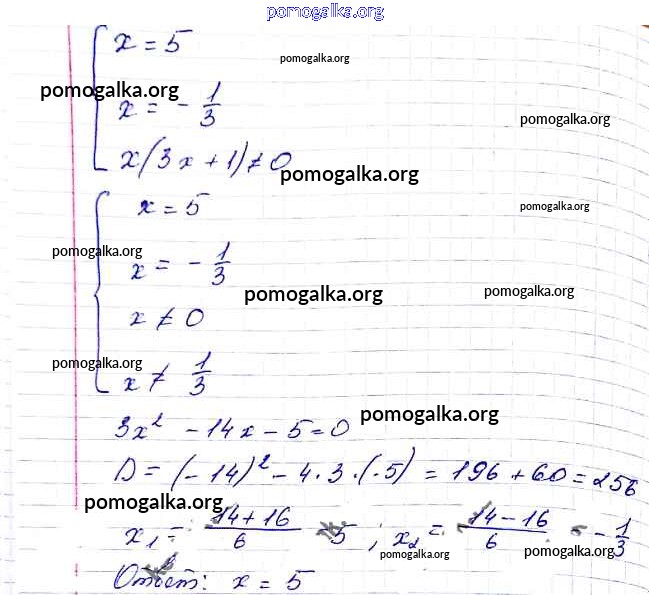 pomogalka.org
x = 5
pomogalka.org
pomogalka.org
x = - 1/3
pomogalka.org
x(3x + 1) ≠ 0
pomogalka.org
x = 5
pomogalka.org
pomogalka.org
x = - 1/3
pomogalka.org
pomogalka.org
x ≠ 0
pomogalka.org
x ≠ 1/3
pomogalka.org
3x² - 14x - 5 = 0
D = (-14)² - 4 · 3 · (-5) = 196 + 60 = 256
pomogalka.org
x₁ = (14 + 16)/6 = 5 ; x₂ = (14 - 16)/6 = - 1/3
pomogalka.org
pomogalka.org
Ответ: x = 5